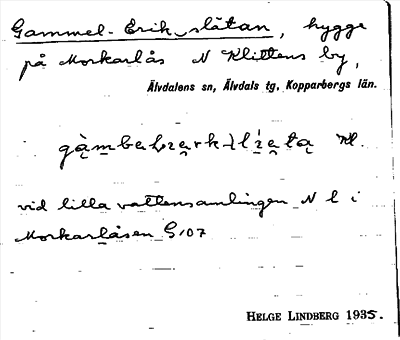 Gammel-Erik-slåtan, hygge
på Morkarlås N Klittens by,
Älvdalens sn, Älvdals tg, Kopparbergs län.
Kl.
vid lilla vattensamlingen N l i
Morkarlåsen G107
HELGE LINDBERG 1935.